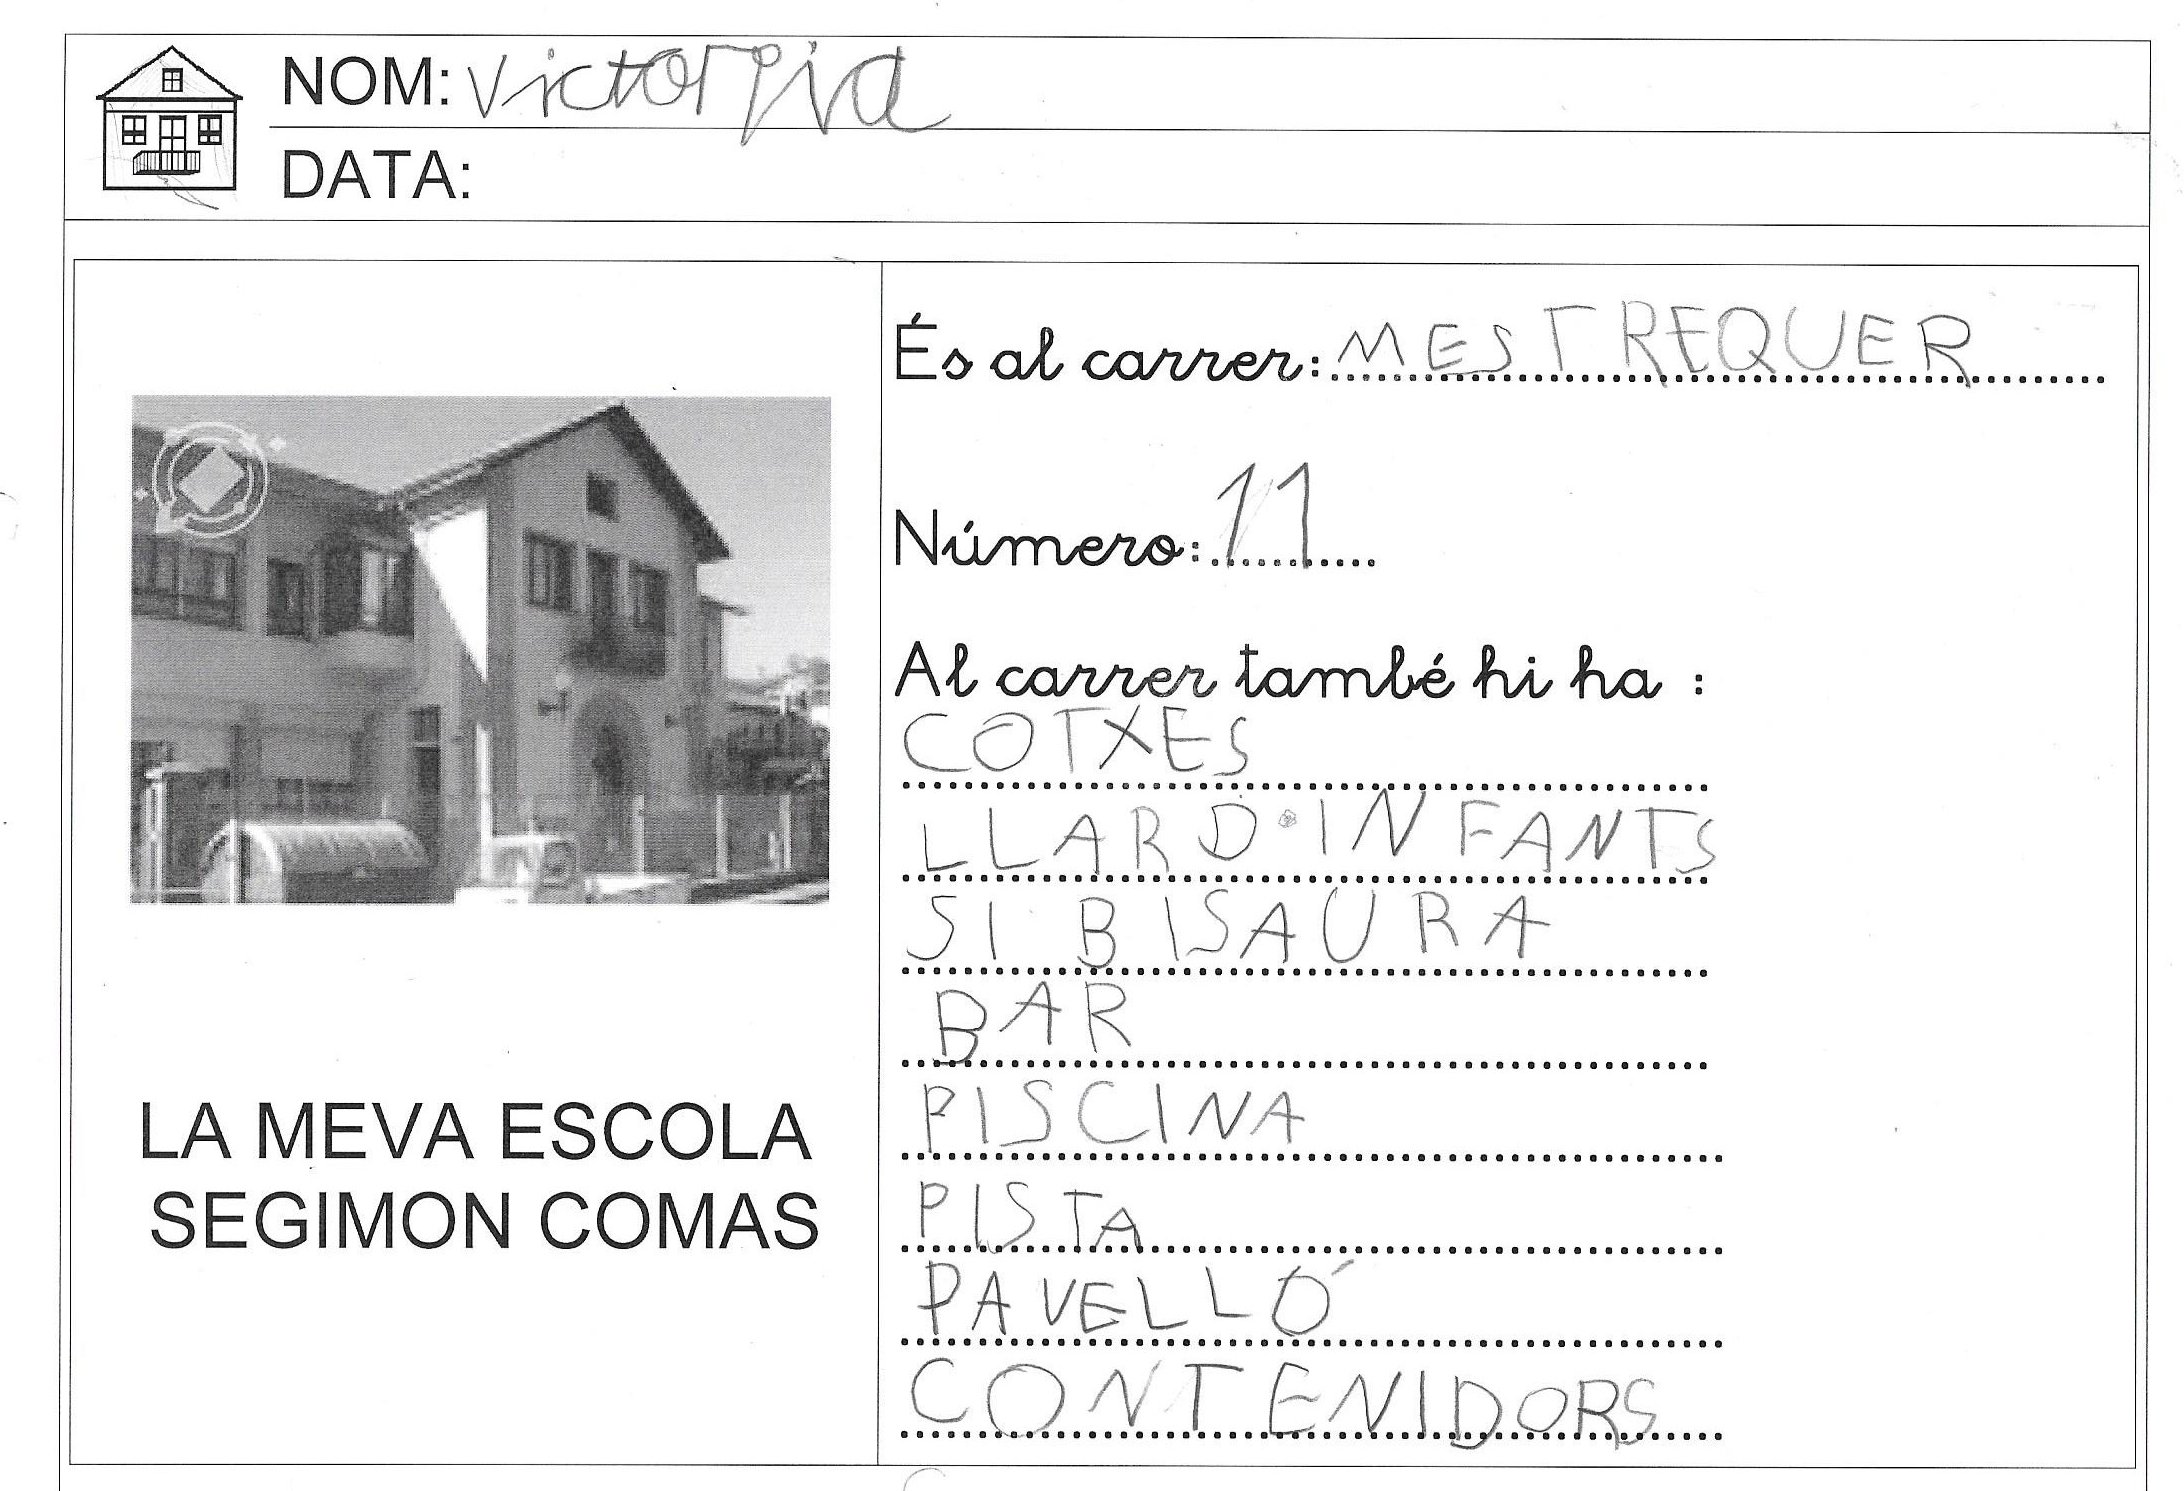 NOM: Victoria
DATA:
És al carrer: MESTREQUER
Número: 11
Al carrer també hi ha :
COTXES
LLAR D'INFANTS
SI BISAURA
BAR
PISCINA
PISTA
PAVELLÓ
CONTENIDORS
LA MEVA ESCOLA
SEGIMON COMAS